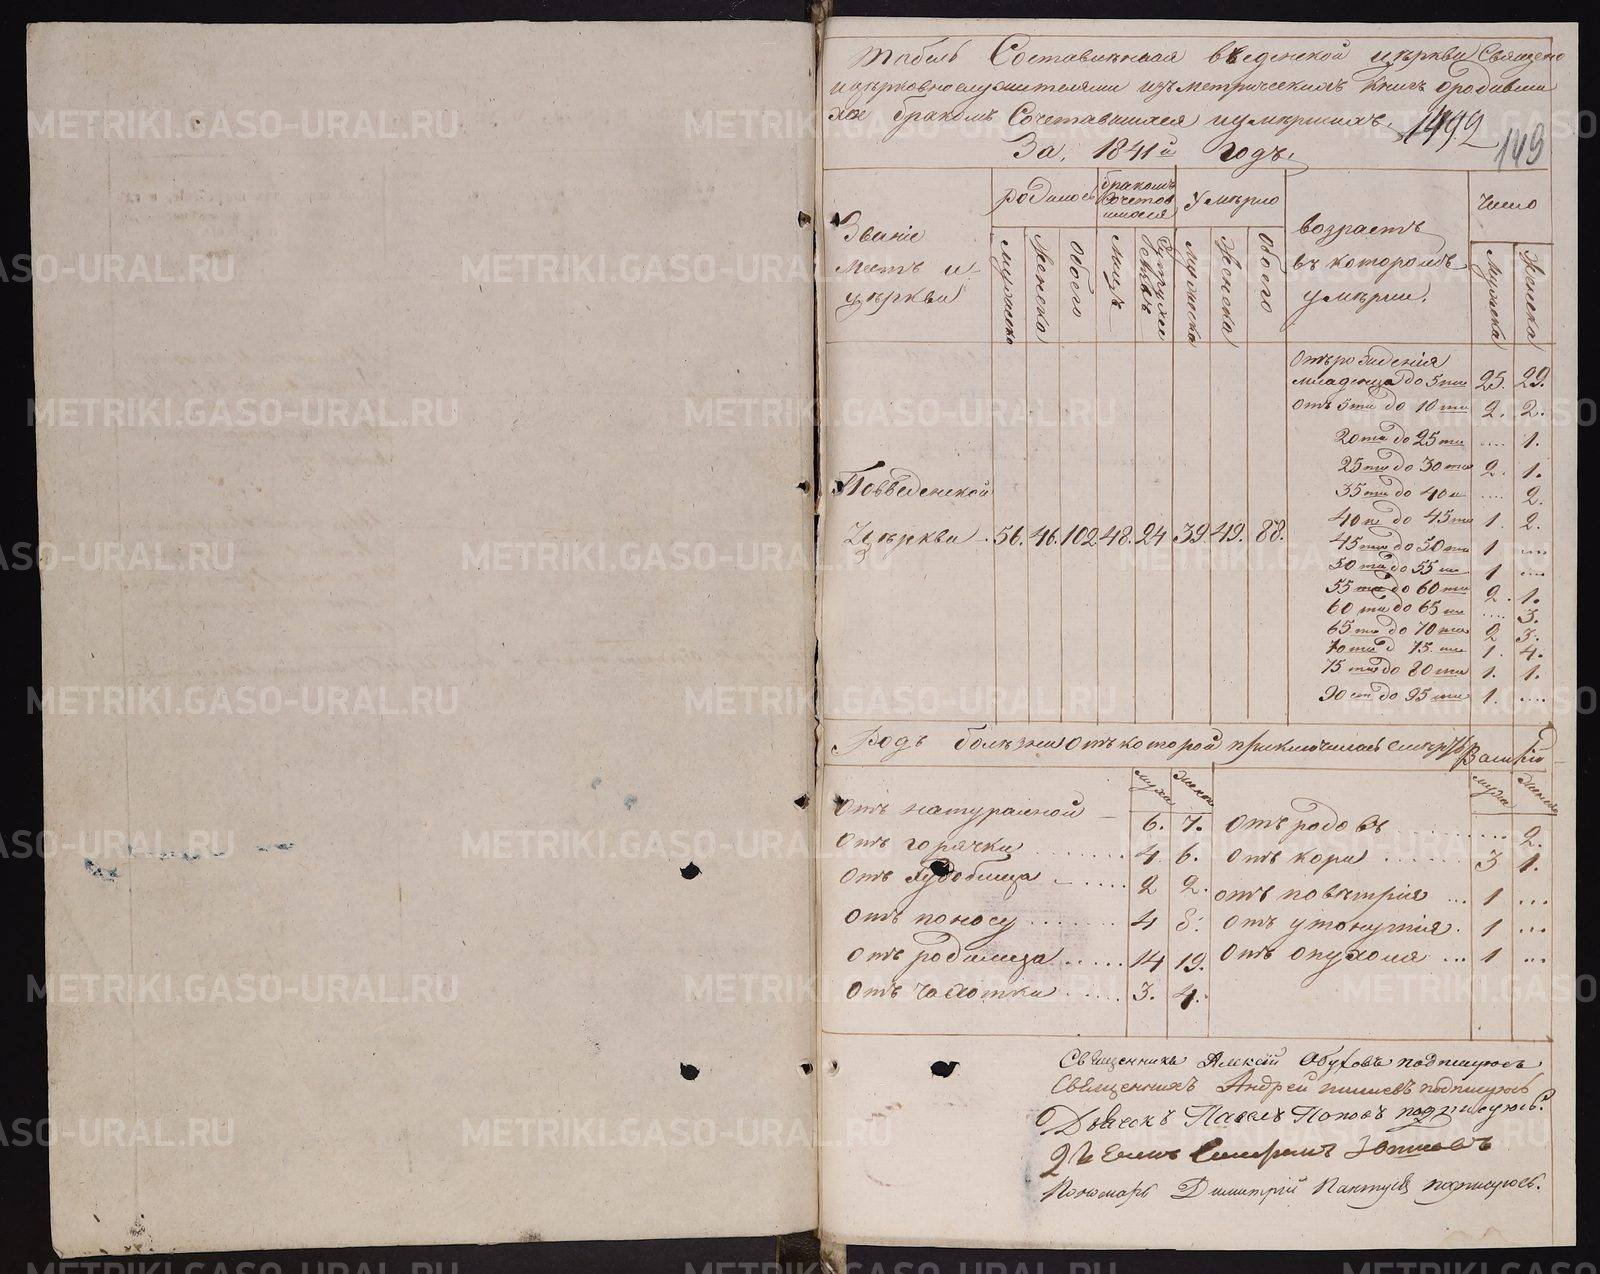 Табель Составленная введенской церкви Священо
ицерковнослужителями изъ метрическихъ книгъ ородивши
хся бракомъ Сочетавшихся иумершихъ.
1492
149
За, 1841й Годъ.
Званіе местъ и церкви
родилось
бракомъ Сочетов шихся
Умерло
возрастъ въ которомъ умерли.
Число
мужеска
Женска
Обоего
лицъ
мужеска
Женска
Обоего
Мужеска
Женска
Отърожденія
младенца до 5ти 25. 29.
отъ 5ти до 10ти 2. 2.
20ти до 25ти .... 1.
25ти до 30ти 2. 1.
35ти до 40и .... 2.
40и до 45ти 1. 2.
45ти до 50ти 1 ....
50ти до 55ти 1 ....
55ти до 60ти 2. 1.
60ти до 65ти .... 3.
65ти до 70ти 2 3.
70ти до 75ти 1. 4.
75ти до 80ти 1. 1.
90ти до 95ти 1. ....
Повведенской
Церкви 56. 46. 102. 48. 24 39. 49. 88.
Родъ болезни отъкоторой приключилась смерть
мужск женск
мужск женска
Отъ натуралной 6. 7.
Отъ горячки 4 6.
Отъ худобища 2 2.
Отъ поносу 4 8.
Отъ родимца 14 19.
Отъ чахотки 3. 4.
Отъ родовъ 2.
Отъ кори 3 1.
отъ поветрія 1 ...
Отъ утонутія 1 ...
Отъ опухоли 1 ...
Священникъ Алексій Обуховъ подпишуюсь
Священникъ Андрей подпишуюсь
Дьячекъ Павелъ Поповъ подписуюсь.
Пономарь Димитрій подпишуюсь.
METRIKI.GASO-URAL.RU